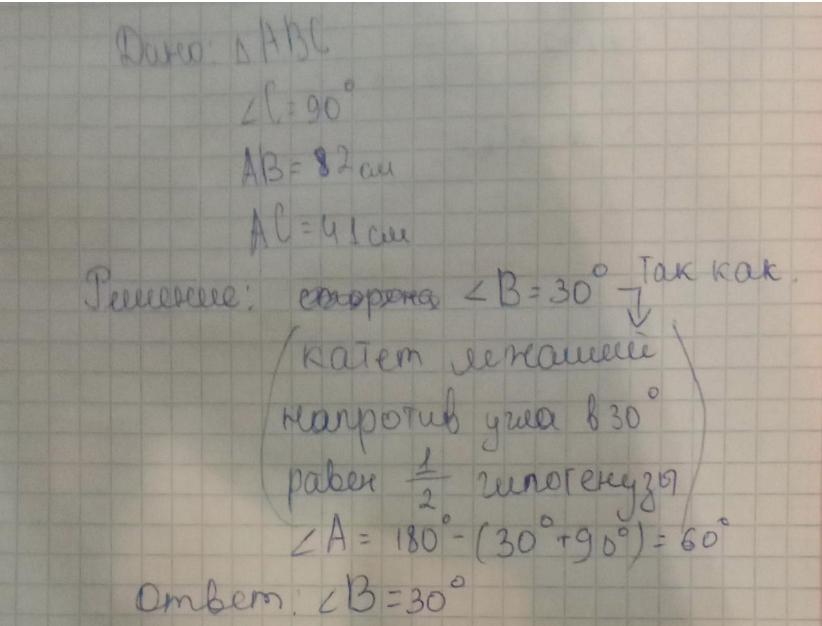 Дано: △ABC
∠C=90°
AB=82см
AC=41см
Решение: сторона ∠B=30° Так как.
(катет лежащий
напротив угла в 30°
равен 1/2 гипотенузы)
∠A=180°-(30°+90°)=60°
Ответ: ∠B=30°